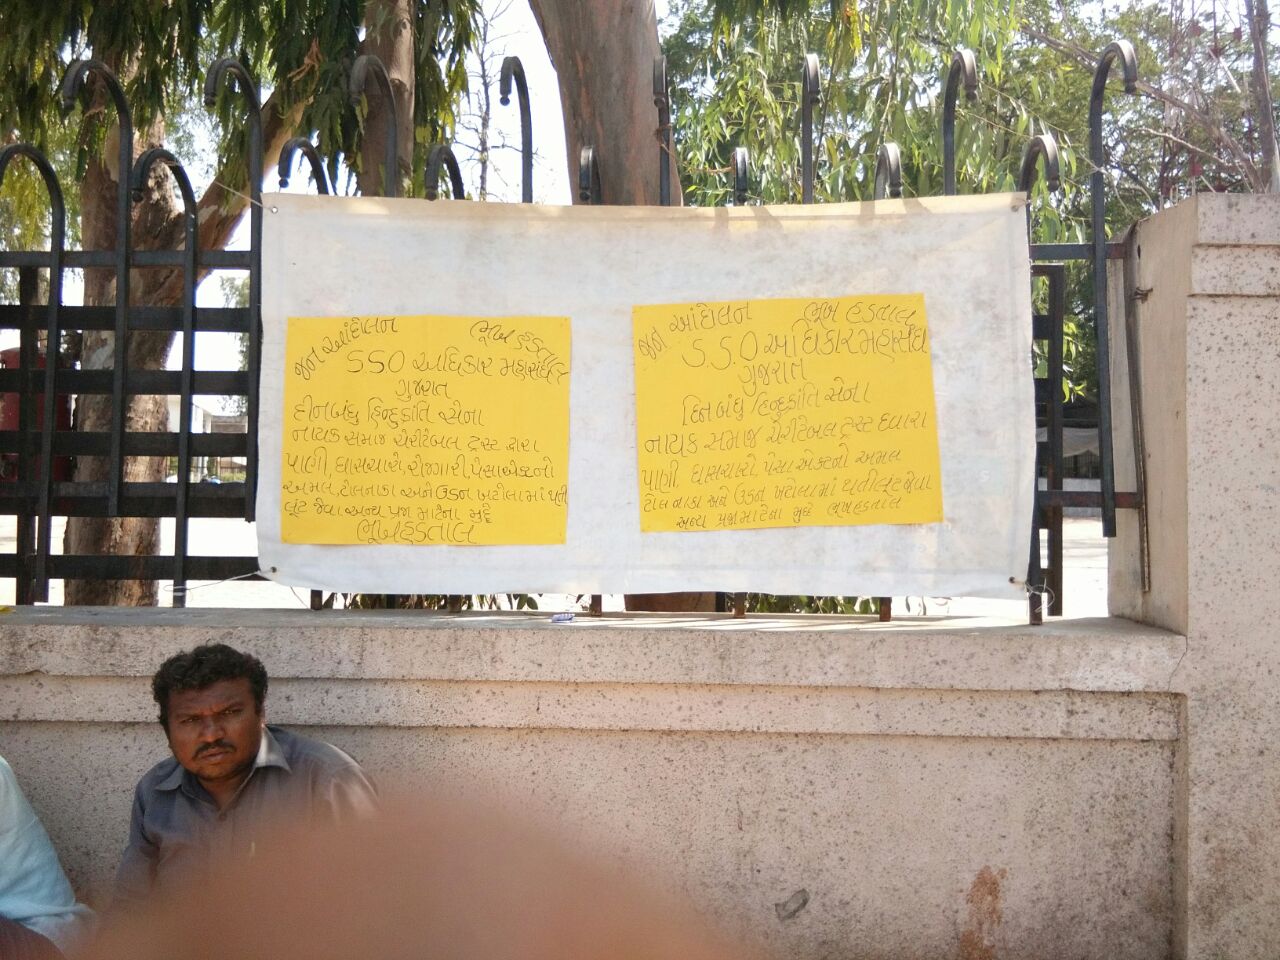 જન આંદોલન ભૂખ હડતાલ
SSO અધિકાર મહાસંઘ
ગુજરાત
દીનબંધુ હિન્દુક્રાંતિ સેના
નાયક સમાજ ચેરીટેબલ ટ્રસ્ટ દ્વારા
પાણી, ઘાસચારો, રોજગારી, પેસા એક્ટનો
અમલ, ટોલનાકા અને ઉડન ખટોલામાં થતી
લૂંટ જેવા અન્ય પ્રજા માટેના મુદ્દે
ભૂખહડતાલ
જન આંદોલન ભૂખ હડતાલ
S.S.O અધિકાર મહાસંઘ
ગુજરાત
દિન બંધુ હિન્દુક્રાંતિ સેના
નાયક સમાજ ચેરીટેબલ ટ્રસ્ટ દવારા
પાણી ઘાસચારો પેસા એક્ટનો અમલ
ટોલ નાકા અને ઉડન ખટોલામાં થતી લૂંટ જેવા
અન્ય પ્રજા માટેના મુદ્દે ભૂખહડતાલ